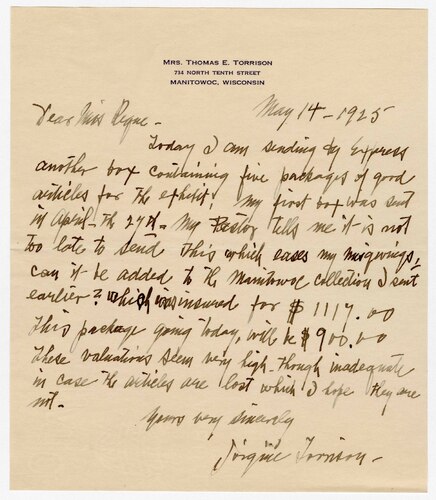 MRS. THOMAS E. TORRISON
734 NORTH TENTH STREET
MANITOWOC, WISCONSIN
May 14 - 1925
Dear Miss Regne -
Today I am sending by Express
another box containing five packages of good
articles for the exhibit. My first box was sent
in April - the 27th - My Pastor tells me it is not
too late to send this which eases my misgivings,
can it be added to the Manitowoc collection I sent
earlier? which was insured for $1117.00
This package going today, will be $900.00
These valuations seem very high though inadequate
in case the articles are lost which I hope they are
not.
Yours very sincerely
Torrison -